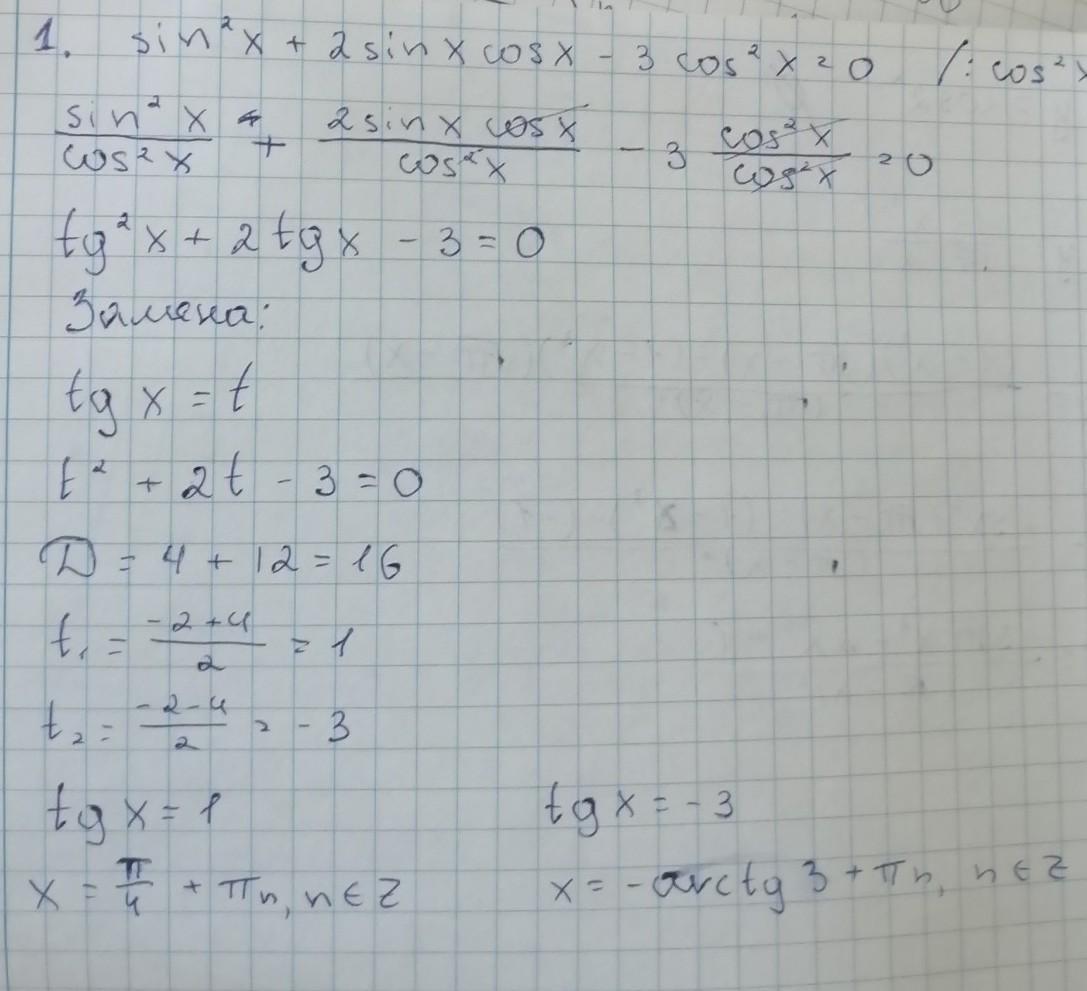 1. sin²x + 2 sin x cos x - 3 cos²x = 0 /: cos²x
sin²x/cos²x + 2 sin x cos x/cos²x - 3 cos²x/cos²x = 0
tg²x + 2 tg x - 3 = 0
Замена:
tg x = t
t² + 2t - 3 = 0
D = 4 + 12 = 16
t₁ = (-2+4)/2 = 1
t₂ = (-2-4)/2 = -3
tg x = 1 tg x = -3
x = π/4 + πn, n ∈ Z x = -arctg 3 + πn, n ∈ Z